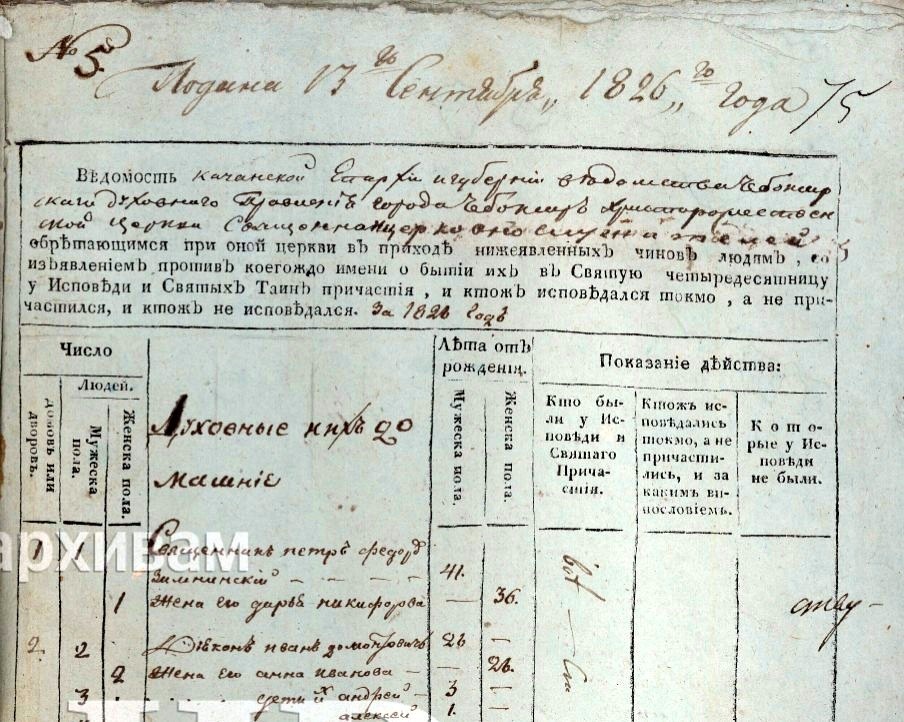 № 5.
Подана 13го Сентября 1826го года 75
Ведомость казанской Епархіи и губерніи ведомства Чебоксар
скаго духовнаго Правленія города Чебоксаръ Христорождествен
ской церкви Священноцерковнослужителей
обрѣтающимся при оной церкви въ приходѣ нижеявленныхъ чиновъ людямъ, со
изъявленіемъ противъ коегождо имени о бытіи ихъ въ Святую четыредесятницу
у Исповѣди и Святыхъ Таинъ причастія, и ктожъ исповѣдался токмо, а не при-
частился, и ктожъ не исповѣдался. За 1826 годъ
Число
Лѣта отъ
рожденія.
Показаніе дѣйства:
Людей.
домовъ или
дворовъ.
Мужеска
пола.
Женска пола.
Духовные и ихъ до
машніе
Мужеска пола.
Женска пола.
Кто бы-
ли у Ис-
повѣди и
Святаго
Прича-
стія.
Ктожъ ис-
повѣдались
токмо, а не
причасти-
лись, и за
какимъ ви-
нословіемъ.
Кото-
рые у Ис-
повѣди
не были.
1 1 Священникъ петръ федоро
41.
1 жена его дарья никифорова — 36.
2 2 Дьяконъ иванъ 26 —
2 жена его анна иванова — 26.
3 дети их андрей 3 —
алексей 1. —
архивам